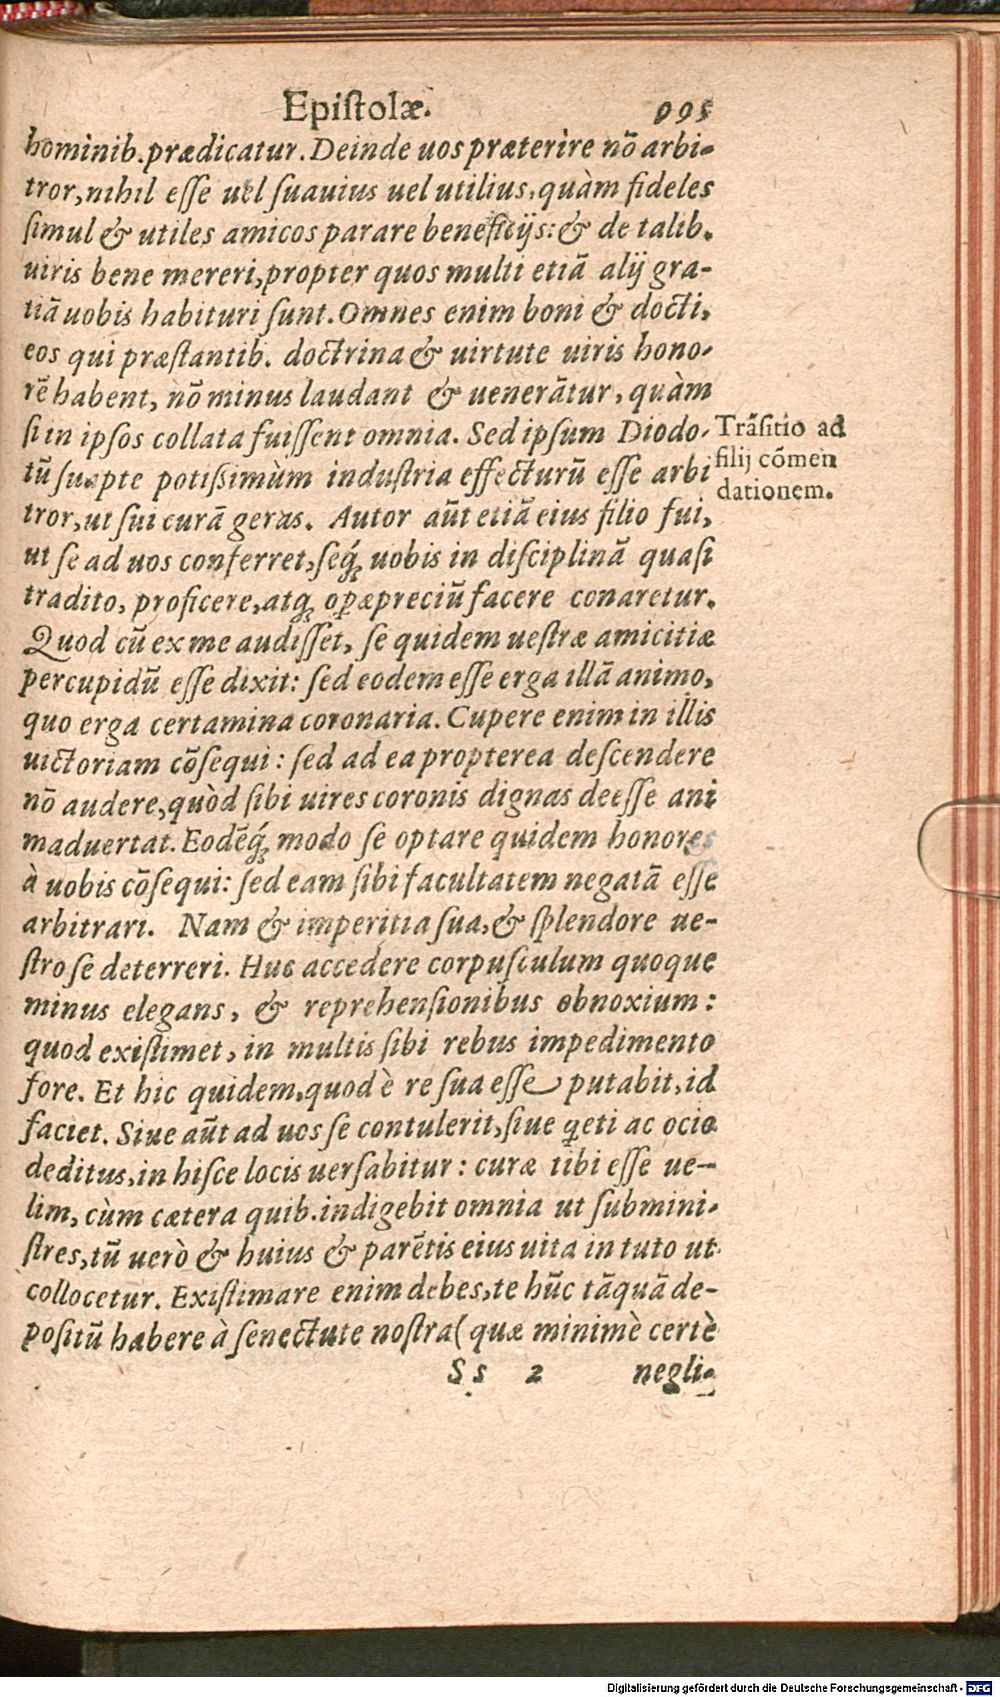 Epiſtolæ. 995
hominib. prædicatur. Deinde uos præterire nō arbi-
tror, nihil eſſe uel ſuauius uel utilius, quàm fideles
ſimul & utiles amicos parare beneficijs: & de talib.
uiris bene mereri, propter quos multi etiā alij gra-
tiā uobis habituri ſunt. Omnes enim boni & docti,
eos qui præſtantib. doctrina & uirtute uiris hono-
rē habent, nō minus laudant & uenerātur, quàm
ſi in ipſos collata fuiſſent omnia. Sed ipſum Diodo-
tū ſuapte potiſsimùm induſtria effecturū eſſe arbi
tror, ut ſui curā geras. Autor aūt etiā eius filio fui,
ut ſe ad uos conferret, ſeq́ꝫ uobis in diſciplinā quaſi
tradito, proficere, atqꝫ oꝑæpreciū facere conaretur.
Quod cū ex me audiſſet, ſe quidem ueſtræ amicitiæ
percupidū eſſe dixit: ſed eodem eſſe erga illā animo,
quo erga certamina coronaria. Cupere enim in illis
uictoriam cōſequi: ſed ad ea propterea deſcendere
nō audere, quòd ſibi uires coronis dignas deeſſe ani
maduertat. Eodēq́ꝫ modo ſe optare quidem honores
à uobis cōſequi: ſed eam ſibi facultatem negatā eſſe
arbitrari. Nam & imperitia ſua, & ſplendore ue-
ſtro ſe deterreri. Huc accedere corpuſculum quoque
minus elegans, & reprehenſionibus obnoxium:
quod exiſtimet, in multis ſibi rebus impedimento
fore. Et hic quidem, quod è re ſua eſſe putabit, id
faciet. Siue aūt ad uos ſe contulerit, ſiue ꝗeti ac ocio
deditus, in hiſce locis uerſabitur: curæ tibi eſſe ue-
lim, cùm cætera quib. indigebit omnia ut ſubmini-
ſtres, tū uerò & huius & parētis eius uita in tuto ut
collocetur. Exiſtimare enim debes, te hūc tāquā de-
poſitū habere à ſenectute noſtra (quæ minimè certè
Ss 2 negli-
Trāſitio ad
filij cōmen
dationem.
Digitalisierung gefördert durch die Deutsche Forschungsgemeinschaft - DFG